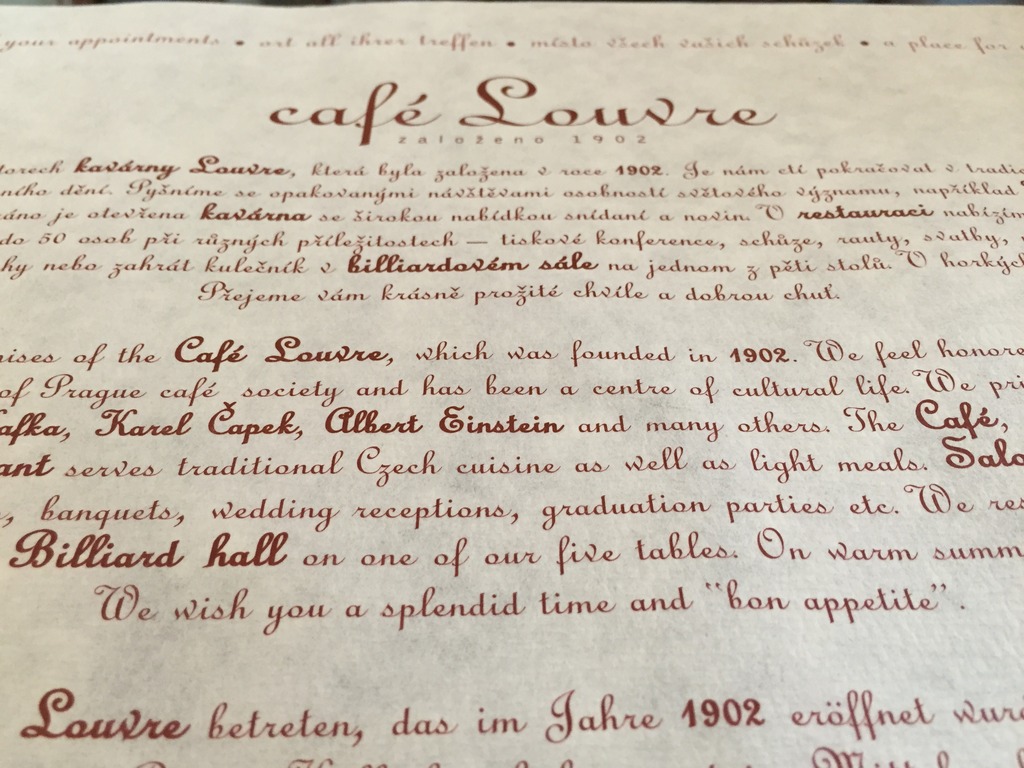 your appointments • ort all ihrer treffen • místo všech vašich schůzek • a place for
café Louvre
založeno 1902
kavárny Louvre, která byla založena v roce 1902. Je nám ctí pokračovat v
dění. Pyšníme se opakovanými návštěvami osobností světového významu, například
je otevřena kavárna se širokou nabídkou snídaní a novin. V restauraci
do 50 osob při různých příležitostech – tiskové konference, schůze, rauty, svatby,
nebo zahrát kulečník v billiardovém sále na jednom z pěti stolů. V
Přejeme vám krásně prožité chvíle a dobrou chuť.
of the Café Louvre, which was founded in 1902. We feel
of Prague café society and has been a centre of cultural life. We
Karel Čapek, Albert Einstein and many others. The Café,
serves traditional Czech cuisine as well as light meals.
, banquets, wedding receptions, graduation parties etc. We
Billiard hall on one of our five tables. On warm
We wish you a splendid time and "bon appetite".
Louvre betreten, das im Jahre 1902 eröffnet